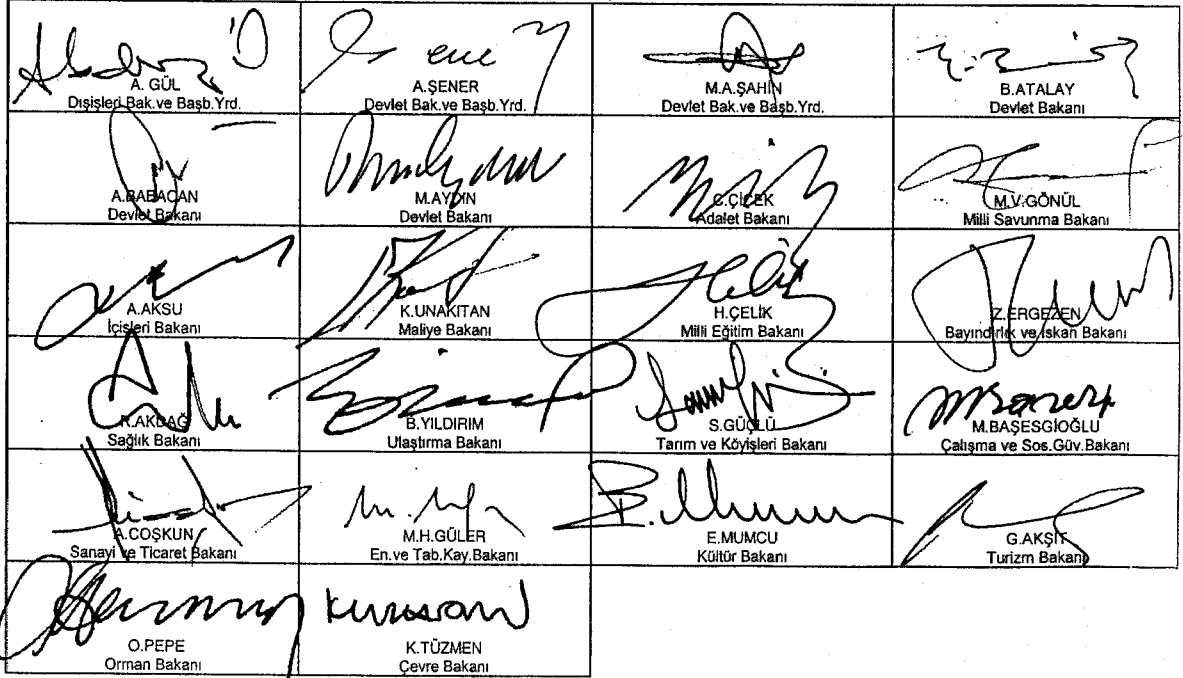 A. GÜL
Dışişleri Bak.ve Başb.Yrd.
A.ŞENER
Devlet Bak.ve Başb.Yrd.
M.A.ŞAHİN
Devlet Bak.ve Başb.Yrd.
B.ATALAY
Devlet Bakanı
A.BABACAN
Devlet Bakanı
M.AYDIN
Devlet Bakanı
C.ÇİÇEK
Adalet Bakanı
M.V.GÖNÜL
Milli Savunma Bakanı
A.AKSU
İçişleri Bakanı
K.UNAKITAN
Maliye Bakanı
H.ÇELİK
Milli Eğitim Bakanı
Z.ERGEZEN
Bayındırlık ve İskan Bakanı
R.AKDAĞ
Sağlık Bakanı
B.YILDIRIM
Ulaştırma Bakanı
S.GÜÇLÜ
Tarım ve Köyişleri Bakanı
M.BAŞESGİOĞLU
Çalışma ve Sos.Güv.Bakanı
A.COŞKUN
Sanayi ve Ticaret Bakanı
M.H.GÜLER
En.ve Tab.Kay.Bakanı
E.MUMCU
Kültür Bakanı
G.AKŞİT
Turizm Bakanı
O.PEPE
Orman Bakanı
K.TÜZMEN
Çevre Bakanı